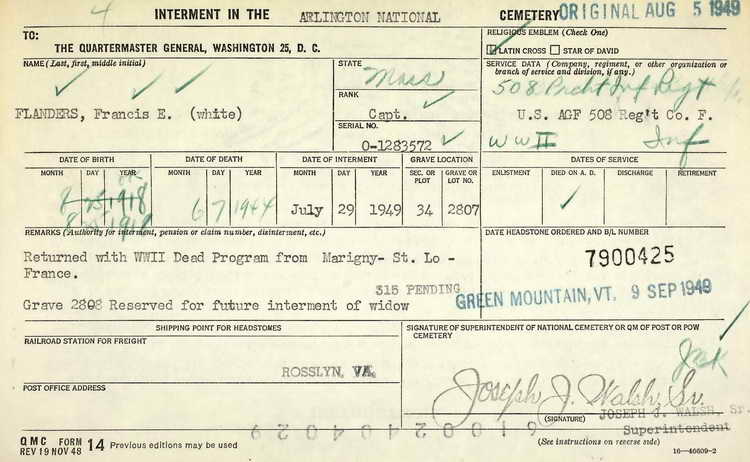 4 INTERMENT IN THE ARLINGTON NATIONAL CEMETERY ORIGINAL AUG 5 1949
TO:
THE QUARTERMASTER GENERAL, WASHINGTON 25, D. C.
RELIGIOUS EMBLEM (Check One)
LATIN CROSS STAR OF DAVID
NAME (Last, first, middle initial)
FLANDERS, Francis E. (white)
STATE
Mass
RANK
Capt.
SERIAL NO.
O-1283572
SERVICE DATA (Company, regiment, or other organization or branch of service and division, if any.)
508 Prcht Inf Regt
U.S. AGF 508 Reg't Co. F.
WW II Inf
DATE OF BIRTH DATE OF DEATH DATE OF INTERMENT GRAVE LOCATION DATES OF SERVICE
MONTH DAY YEAR MONTH DAY YEAR MONTH DAY YEAR SEC. OR PLOT GRAVE OR LOT NO. ENLISTMENT DIED ON A. D. DISCHARGE RETIREMENT
8 25 1918 6 7 1944 July 29 1949 34 2807
REMARKS (Authority for interment, pension or claim number, disinterment, etc.)
Returned with WWII Dead Program from Marigny- St. Lo -
France.
315 PENDING
Grave 2808 Reserved for future interment of widow
DATE HEADSTONE ORDERED AND B/L NUMBER
7900425
GREEN MOUNTAIN, VT. 9 SEP 1949
SHIPPING POINT FOR HEADSTONES
RAILROAD STATION FOR FREIGHT
ROSSLYN, VA.
POST OFFICE ADDRESS
SIGNATURE OF SUPERINTENDENT OF NATIONAL CEMETERY OR QM OF POST OR POW CEMETERY
Joseph J. Walsh, Sr.
(SIGNATURE) JOSEPH J. WALSH, Sr.
Superintendent
(See instructions on reverse side)
QMC FORM 14 Previous editions may be used
REV 19 NOV 48
16—46609-2